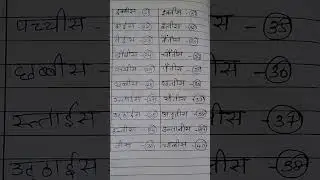 इक्कीस - 21 इकतीस - 31
बाईस - 22 बत्तीस - 32
तेईस - 23 तैंतीस - 33
चौबीस - 24 चौंतीस - 34
पच्चीस - 25 पैंतीस - 35
छब्बीस - 26 छत्तीस - 36
सत्ताईस - 27 सैंतीस - 37
अठ्ठाईस - 28 अड़तीस - 38
उनतीस - 29 उनतालीस - 39
तीस - 30 चालीस - 40